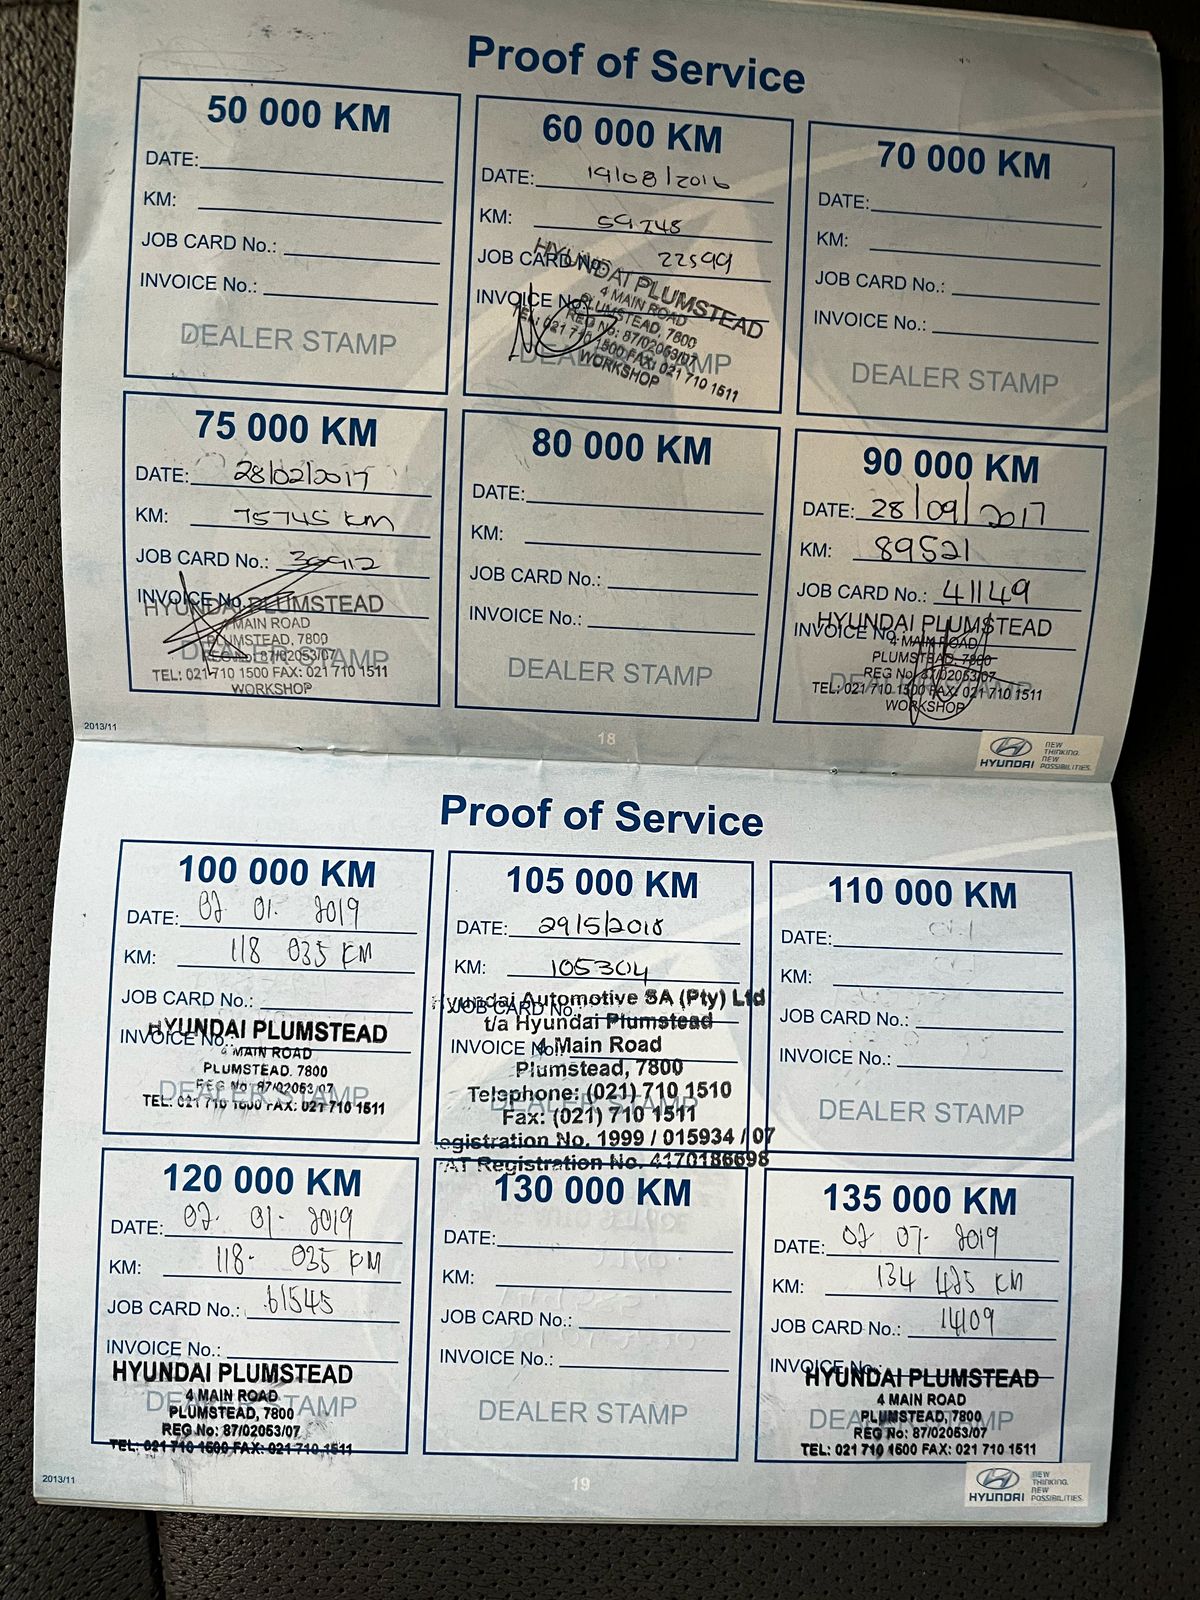 Proof of Service
50 000 KM
DATE:
KM:
JOB CARD No.:
INVOICE No.:
DEALER STAMP
60 000 KM
DATE: 19/08/2016
KM: 59748
JOB CARD No. 22599
INVOICE No.
HYUNDAI PLUMSTEAD
4 MAIN ROAD
PLUMSTEAD, 7800
REG No: 87/02053/07
TEL: 021 710 1500 FAX: 021 710 1511
WORKSHOP
DEALER STAMP
70 000 KM
DATE:
KM:
JOB CARD No.:
INVOICE No.:
DEALER STAMP
75 000 KM
DATE: 28/02/2017
KM: 75745 KM
JOB CARD No.: 30912
INVOICE No.
HYUNDAI PLUMSTEAD
4 MAIN ROAD
PLUMSTEAD, 7800
REG No: 87/02053/07
DEALER STAMP
TEL: 021 710 1500 FAX: 021 710 1511
WORKSHOP
80 000 KM
DATE:
KM:
JOB CARD No.:
INVOICE No.:
DEALER STAMP
90 000 KM
DATE: 28/09/2017
KM: 89521
JOB CARD No.: 41149
INVOICE No.
HYUNDAI PLUMSTEAD
4 MAIN ROAD
PLUMSTEAD, 7800
REG No: 87/02053/07
TEL: 021 710 1500 FAX: 021 710 1511
DEALER STAMP
WORKSHOP
2013/11
18
HYUNDAI
NEW
THINKING.
NEW
POSSIBILITIES.
Proof of Service
100 000 KM
DATE: 02 01. 2019
KM: 118 035 KM
JOB CARD No.:
INVOICE No.:
HYUNDAI PLUMSTEAD
4 MAIN ROAD
PLUMSTEAD. 7800
REG No: 87/02053/07
DEALER STAMP
TEL: 021 710 1500 FAX: 021 710 1511
105 000 KM
DATE: 29/5/2018
KM: 105304
Hyundai Automotive SA (Pty) Ltd
JOB CARD No.:
t/a Hyundai Plumstead
INVOICE No.:
4 Main Road
Plumstead, 7800
Telephone: (021) 710 1510
DEALER STAMP
Fax: (021) 710 1511
egistration No. 1999 / 015934 / 07
AT Registration No. 4170186698
110 000 KM
DATE:
KM:
JOB CARD No.:
INVOICE No.:
DEALER STAMP
120 000 KM
DATE: 02. 01- 2019
KM: 118- 035 KM
JOB CARD No.: 61545
INVOICE No.:
HYUNDAI PLUMSTEAD
4 MAIN ROAD
DEALER STAMP
PLUMSTEAD, 7800
REG No: 87/02053/07
TEL: 021 710 1500 FAX: 021 710 1511
130 000 KM
DATE:
KM:
JOB CARD No.:
INVOICE No.:
DEALER STAMP
135 000 KM
DATE: 02 07- 2019
KM: 134 425 KM
JOB CARD No.: 14109
INVOICE No.:
HYUNDAI PLUMSTEAD
4 MAIN ROAD
PLUMSTEAD, 7800
DEALER STAMP
REG No: 87/02053/07
TEL: 021 710 1500 FAX: 021 710 1511
2013/11
19
HYUNDAI
NEW
THINKING.
NEW
POSSIBILITIES.